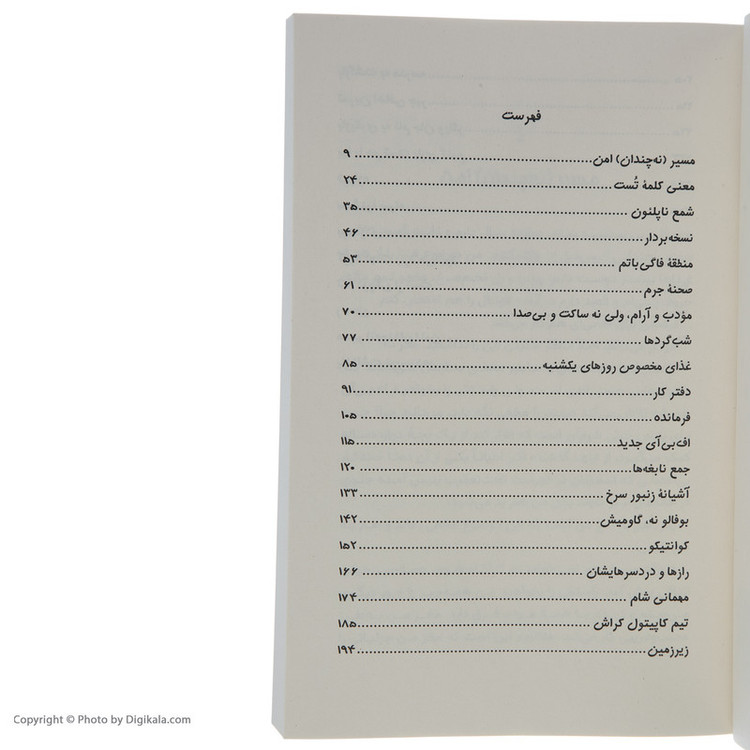 فهرست
مسیر (نه‌چندان) امن ........ ۹
معنی کلمهٔ تُست ........ ۲۴
شمع ناپلئون ........ ۳۵
نسخه‌بردار ........ ۴۶
منطقهٔ فاگی‌باتم ........ ۵۳
صحنهٔ جرم ........ ۶۱
مؤدب و آرام، ولی نه ساکت و بی‌صدا ........ ۷۰
شب‌گردها ........ ۷۷
غذای مخصوص روزهای یکشنبه ........ ۸۵
دفتر کار ........ ۹۱
فرمانده ........ ۱۰۵
اف‌بی‌آی جدید ........ ۱۱۵
جمع نابغه‌ها ........ ۱۲۰
آشیانهٔ زنبور سرخ ........ ۱۳۳
بوفالو نه، گاومیش ........ ۱۴۲
کوانتیکو ........ ۱۵۲
رازها و دردسرهایشان ........ ۱۶۶
مهمانی شام ........ ۱۷۴
تیم کاپیتول کراش ........ ۱۸۵
زیرزمین ........ ۱۹۴
Copyright © Photo by Digikala.com